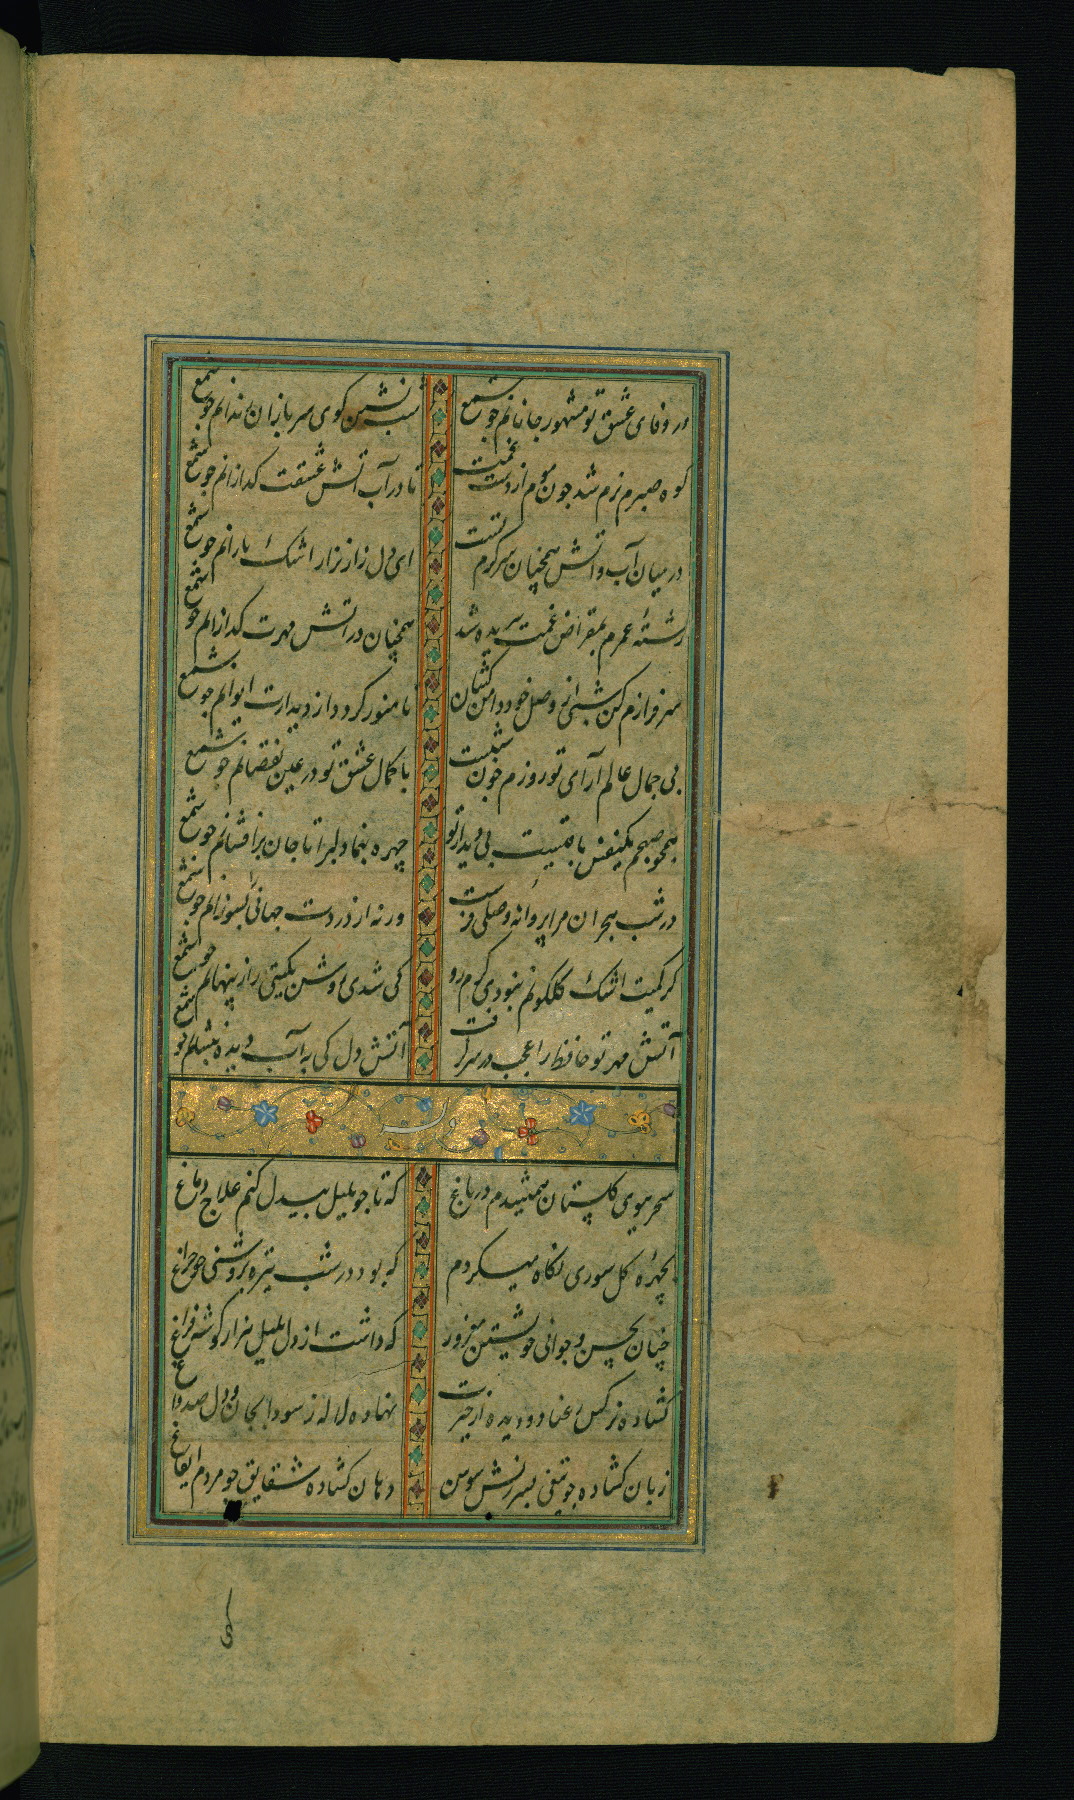 در وفای عشق تو مشهور جانانم چو شمع شب نشین کوی سربازان و رندانم چو شمع
کوه صبرم نرم شد چون موم از دست غمت تا در آب و آتش عشقت گدازانم چو شمع
در میان آب و آتش همچنان سرگرم تست ای دل زار نزار اشک بارانم چو شمع
رشتهٔ عمرم بمقراض غمت ببریده شد همچنان در آتش مهرت گدازانم چو شمع
سرفرازم کن شبی از وصل خود دامن کشان تا منور گردد از دیدارت ایوانم چو شمع
بی جمال عالم آرای تو روزم چون شبست با کمال عشق تو در عین نقصانم چو شمع
همچو صبحم یکنفس باقیست بی دیدار تو چهره بنما دلبرا تا جان برافشانم چو شمع
در شب هجران مرا پروانه وصلی فرست ورنه از دردت جهانی را بسوزانم چو شمع
گر کمیت اشک گلگونم نبودی گرم رو کی شدی روشن بگیتی راز پنهانم چو شمع
آتش مهر تو حافظ را عجب در سر گرفت آتش دل کی به آب دیده بنشانم چو شمع
وله
سحر ببوی گلستان همیشدم در باغ که تا چو بلبل بیدل کنم علاج دماغ
بچهرهٔ گل سوری نگاه میکردم که بود در شب تیره بروشنی چو چراغ
چنان بحسن و جوانی خویشتن مغرور که داشت از دل بلبل هزار گونه فراغ
گشاده نرگس رعنا دو دیده از حیرت نهاده لاله ز سودا بجان و دل صد داغ
زبان کشاده چو تیغی بسرزنش سوسن دهان کشاده شقایق چو مردم ایغاغ